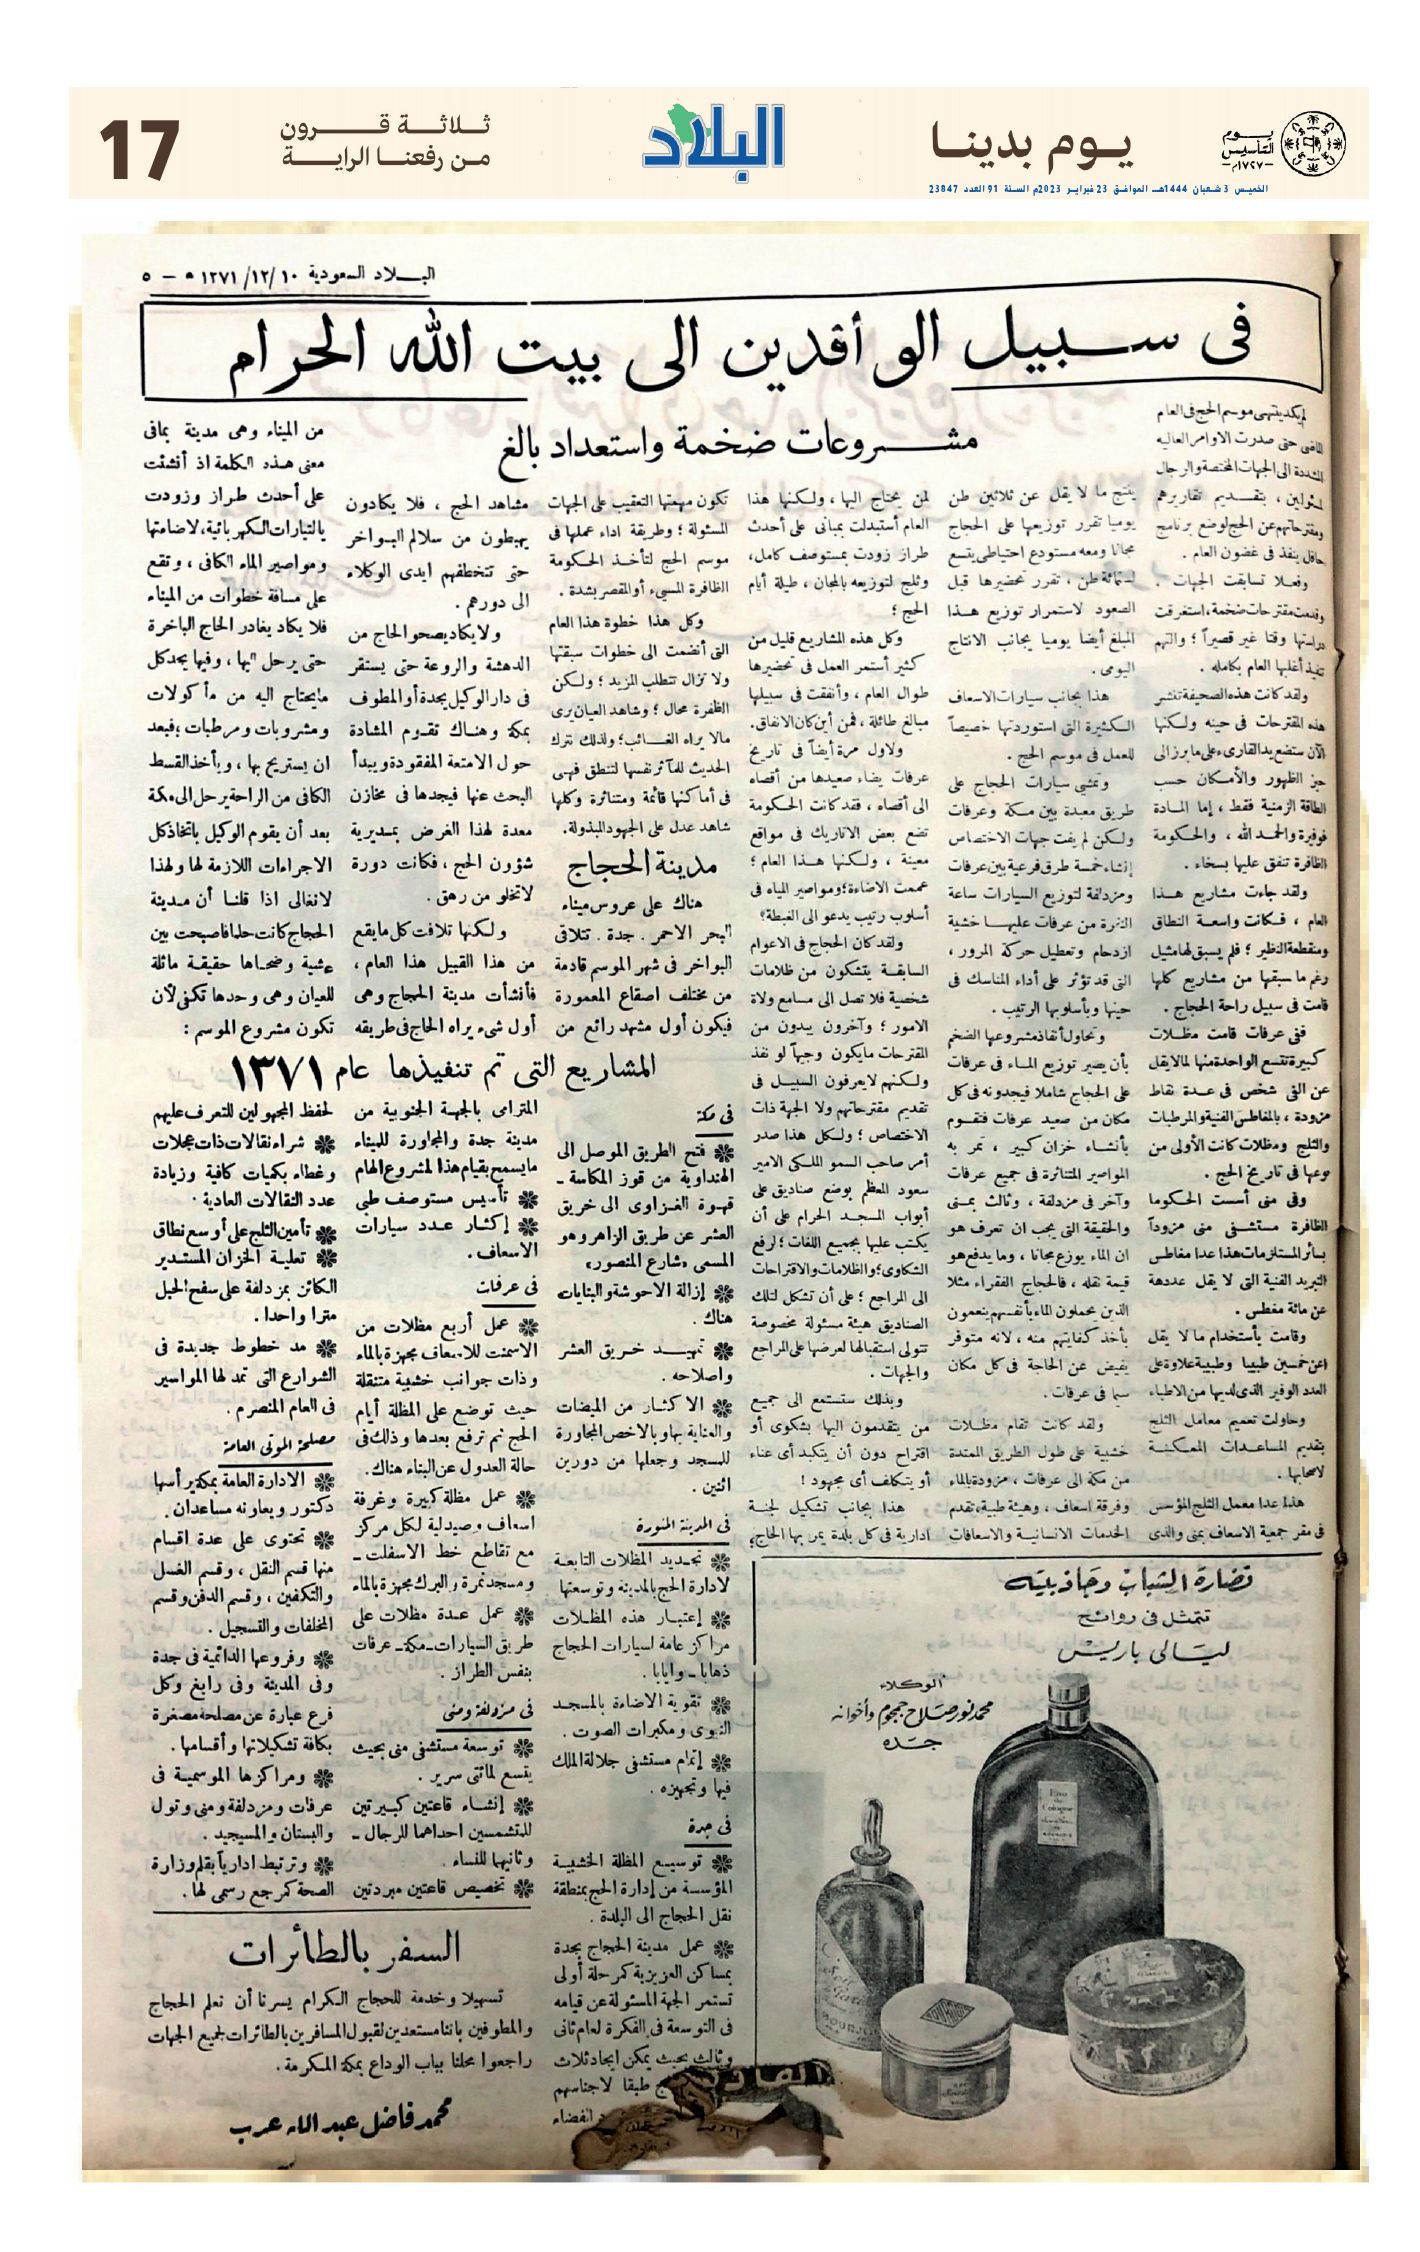 يوم التأسيس
١٧٢٧م
يـوم بدينـا
الخميس 3 شعبان 1444هـ الموافق 23 فبراير 2023م السنة 91 العدد 23847
البلاد
ثـلاثـة قـــرون
مـن رفعنـا الرايـــة
17
البــلاد السعودية ١٠/ ١٢/ ١٣٧١ ه — ٥
فى سـبيل الوأفدين الى بيت الله الحرام
مشــروعات ضخمة واستعداد بالغ
لم يكد ينتهى موسم الحج فى العام
الماضى حتى صدرت الاوامر العاليه
المشددة الى الجهات المختصة والرجال
المسئولين ، بتقـديم تقاريرهم
ومقترحاتهم عن الحج لوضع برنامج
حافل ينفذ فى غضون العام .
وفعـلا تسابقت الجهات .
وقدمت مقترحات ضخمة، استغرقت
دراستها وقتا غير قصيراً ؛ والتهم
تنفيذ أغلبها العام بكامله .
ولقد كانت هذه الصحيفة تنشر
هذه المقترحات فى حينه ولكنها
الآن ستضع يد القارىء على ما برز الى
حيز الظهور والأمكان حسب
الطاقة الزمنية فقط ، إما المـادة
فوفيرة والحمد الله ، والحكومة
الظافرة تنفق عليها بسخاء .
ولقد جاءت مشاريع هـذا
العام ، فكانت واسعـة النطاق
ومنقطعة النظير ؛ فلم يسبق لها مثيل
رغم ما سبقها من مشاريع كلها
قامت فى سبيل راحة الحجاج .
ففى عرفات قامت مظـلات
كبيرة تتسع الواحدة منها لمالا يقل
عن الفى شخص فى عـدة نقاط
مزودة ، بالمغاطس الفنية والمرطبات
والثلج ومظلات كانت الأولى من
نوعها فى تاريخ الحج .
وفى منى أسست الحكوما
الظافرة مستشفى منى مزوداً
بسائر المستلزمات هذا عدا مغاطس
التبريد الفنية التى لا يقل عددهة
عن مائة مغطس .
وقامت بأستخدام ما لا يقل
اعن خمسين طبيبا وطبيبة علاوة على
العدد الوفير الذى لديها من الاطباء
وحاولت تعميم معامل الثلج
بتقديم المساعدات الممكنة
لاصحابها .
هذا عدا معمل الثلج المؤسس
فى مقر جمعية الاسعاف بمنى والذى
ينتج ما لا يقل عن ثلاثين طن
يوميا تقرر توزيعها على الحجاج
مجانا ومعه مستودع احتياطى يتسع
لستمائة طن ، تقرر تحضيرها قبل
الصعود لاستمرار توزيع هـذا
المبلغ أيضا يوميا بجانب الانتاج
اليومى .
هذا بجانب سيارات الاسعاف
الكثيرة التى استوردتها خصيصاً
للعمل فى موسم الحج .
وتمشى سيارات الحجاج على
طريق معبدة بين مكة وعرفات
ولكن لم يفت جهات الاختصاص
إنشاء خمسة طرق فرعية بين عرفات
ومزدلفة لتوزيع السيارات ساعة
النفرة من عرفات عليهـا خشية
ازدحام وتعطيل حركة المرور ،
التى قد تؤثر على أداء المناسك فى
حينها وبأسلوبها الرتيب .
وتحاول أنفاذ مشروعها الضخم
بأن يصير توزيع المـاء فى عرفات
على الحجاج شاملا فيجدونه فى كل
مكان من صعيد عرفات فتقوم
بأنشاء خزان كبير ، تمر به
المواصير المتناثرة فى جميع عرفات
وآخر فى مزدلفة ، وثالث بمـنى
والحقيقة التى يجب ان تعرف هو
ان الماء يوزع مجانا ، وما يدفع هو
قيمة نقله ، فالحجاج الفقراء مثلا
الذين يحملون الماء بأنفسهم ينعمون
بأخذ كفايتهم منه ، لانه متوفر
يفيض عن الحاجة فى كل مكان
سيما فى عرفات .
ولقد كانت تقام مظـلات
خشبية على طول الطريق الممتدة
من مكة الى عرفات ، مزودة بالماء
وفرقة اسعاف ، وهيئة طبية، تقدم
الخدمات الانسانيـة والاسعافات
لمن يحتاج اليها ، ولكنها هذا
العام أستبدلت بمبانى على أحدث
طراز زودت بمستوصف كامل،
وثلج لتوزيعه بالمجان ، طيلة أيام
الحج ؛
وكل هذه المشاريع قليل من
كثير أستمر العمل فى تحضيرها
طوال العام ، وأنفقت فى سبيلها
مبالغ طائلة ، فمن أين كان الانفاق.
ولاول مرة أيضاً فى تاريخ
عرفات يضاء صعيدها من أقصاه
الى أقصاه ، فقد كانت الحكومة
تضع بعض الاتاريك فى مواقع
معينة ، ولكنها هـذا العام ؛
عممت الاضاءة؛ ومواصير المياه فى
أسلوب رتيب يدعو الى الغبطة؟
ولقد كان الحجاج فى الاعوام
السابقـة يتشكون من ظلامات
شخصية فلا تصل الى مسامع ولاة
الامور ؛ وآخرون يبدون من
المقترحات ما يكون وجيهاً لو نفذ
ولكنهم لا يعرفون السبيل فى
تقديم مقترحاتهم ولا الجهة ذات
الاختصاص ؛ ولكل هذا صدر
أمر صاحب السمو الملكى الامير
سعود المعظم بوضع صناديق على
أبواب المسجد الحرام على أن
يكتب عليها بجميع اللغات ؛ لرفع
الشكاوى؛ والظلامات والاقتراحات
الى المراجع ؛ على أن تشكل لتلك
الصناديق هيئة مسئولة مخصوصة
تتولى استقبالها لعرضها على المراجع
والجهات .
وبذلك ستستمع الى جميع
من يتقدمون اليها بشكوى أو
اقتراح دون أن يتكبد أى عناء
أو يتكلف أى مجهود !
هذا بجانب تشكيل لجنة
ادارية فى كل بلدة يمر بها الحاج؛
تكون مهمتها التعقيب على الجهات
المسئولة ؛ وطريقة اداء عملها فى
موسم الحج لتأخذ الحكومة
الظافرة المسىء أو المقصر بشدة .
وكل هذا خطوة هذا العام
التى أنضمت الى خطوات سبقتها
ولا تزال تتطلب المزيد ؛ ولكن
الظفرة محال ؛ وشاهد العيان يرى
مالا يراه الغـائب؛ ولذلك نترك
الحديث للمآثر نفسها لتنطق فهى
فى أماكنها قائمة ومتناثرة وكلها
شاهد عدل على الجهود المبذولة.
مدينة الحجاج
هناك على عروس ميناء
البحر الاحمر . جدة . تتلاقى
البواخر فى شهر الموسم قادمة
من مختلف اصقاع المعمورة
فيكون أول مشهد رائع من
مشاهد الحج ، فلا يكادون
يهبطون من سلالم البـواخر
حتى تتخطفهم ايدى الوكلاء
الى دورهم .
ولا يكاد يصحو الحاج من
الدهشة والروعة حتى يستقر
فى دار الوكيل بجدة أو المطوف
بمكة وهنـاك تقـوم المشادة
حول الامتعة المفقودة ويبدأ
البحث عنها فيجدها فى مخازن
معدة لهذا الغرض بمـديرية
شؤون الحج ، فكانت دورة
لا تخلو من رهق .
ولكنها تلافت كل ما يقع
من هذا القبيل هذا العام ،
فأنشأت مدينة الحجاج وهى
أول شىء يراه الحاج فى طريقه
من الميناء وهى مدينة بمافى
معنى هـذه الكلمة اذ أنشئت
على أحدث طراز وزودت
بالتيارات الكهربائية، لاضاءتها
ومواصير الماء الكافى ، وتقع
على مسافة خطوات من الميناء
فلا يكاد يغادر الحاج الباخرة
حتى يرحل اليها ، وفيها يجد كل
ما يحتاج اليه من مأكولات
ومشروبات ومرطبات ؛ فبعد
ان يستريح بها ، ويأخذ القسط
الكافى من الراحة يرحل الى مكة
بعد أن يقوم الوكيل باتخاذ كل
الاجراءات اللازمة لها ولهذا
لا نغالى اذا قلنـا أن مـدينة
الحجاج كانت حلما فاصبحت بين
عشية وضحـاها حقيقـة ماثلة
للعيان وهى وحدها تكفى لآن
تكون مشروع الموسم :
المشاريع التى تم تنفيذها عام ١٣٧١
فى مكة
فتح الطريق الموصل الى
الهنداوية من قوز المكاسة ـ
قهـوة الغـزاوى الى خريق
العشر عن طريق الزاهر وهو
المسمى «شارع المنصور»
إزالة الاحوشة والبنايات
هناك .
تمهيـد خـريق العشر
واصلاحه .
الاكثـار من المبضات
والعناية بها وبالاخص المجاورة
للمسجد وجعلها من دورين
اثنين .
فى المدينة المنورة
تجـديـد المظلات التابعـة
لادارة الحج بالمدينة وتوسعتها
إعتبـار هذه المظـلات
مراكز عامة لسيارات الحجاج
ذهابا ــ وايابا .
تقوية الاضاءة بالمسجـد
النبوى ومكبرات الصوت .
إتمام مستشفى جلالة الملك
فيها وتجهيزه .
فى جدة
توسيـع المظلة الخشبيـة
المؤسسة من إدارة الحج بمنطقة
نقل الحجاج الى البلدة .
عمل مدينة الحجاج بجدة
بمساكن العزيزية كمرحلة أولى
تستمر الجهة المسئولة عن قيامه
فى التوسعة فى الفكرة لعام ثانى
وثالث بحيث يمكن ايجاد ثلاث
طبقا لاجناسهم
انفضاء
المترامى بالجهة الجنوبية من
مدينة جدة والمجاورة للميناء
ما يسمح بقيام هذا المشروع الهام
تأسيس مستوصف طبى
إكثـار عـدد سيارات
الاسعاف .
فى عرفات
عمل أربع مظلات من
الاسمنت للاسعاف مجهزة بالماء
وذات جوانب خشبية متنقلة
حيث توضع على المظلة أيام
الحج ثم ترفع بعدها وذلك فى
حالة العدول عن البناء هناك.
عمل مظلة كبيرة وغرفة
اسعاف وصيدلية لكل مركز
مع تقاطع خط الاسفلت ــ
ومسجد نمرة والبرك مجهزة بالماء
عمل عـدة مظلات على
طريق السيارات ـ مكة ـ عرفات
بنفس الطراز .
فى مزدلفة ومنى
توسعة مستشفى منى بحيث
يتسع لمائتى سرير .
إنشـاء قاعتين كبيرتين
للمتشمسين احداهما للرجال ــ
وثانيها للنساء .
تخصيص قاعتين مبردتين
لحفظ المجهولين للتعرف عليهم
شراء نقالات ذات عجلات
وغطاء بكميات كافية وزيادة
عدد النقالات العادية .
تأمين الثلج على أوسع نطاق
تعلية الخزان المستـدير
الكائن بمزدلفة على سفح الجبل
مترا واحدا .
مد خطوط جديدة فى
الشوارع التى تمد لها المواسير
فى العام المنصرم .
مصلحة الموتى العامة
الادارة العامة بمكة يرأسها
دكتور ويعاونه مساعدان .
تحتوى على عدة اقسام
منها قسم النقل ، وقسم الغسل
والتكفين ، وقسم الدفن وقسم
المخلفات والتسجيل .
وفروعها الدائمية فى جدة
وفى المدينة وفى رابغ وكل
فرع عبارة عن مصلحة مصغرة
بكافة تشكيلاتها وأقسامها .
ومراكزها الموسميـة فى
عرفات ومزدلفة ومنى وتول
والبستان والمسيجيد .
وترتبط ادارياً بقلم وزارة
الصحة كمرجع رسمى لها .
السفر بالطائرات
تسهيلا وخدمة للحجاج الكرام يسرنا أن نعلم الحجاج
والمطوفين باننا مستعدين لقبول المسافرين بالطائرات لجميع الجهات
راجعوا محلنا بباب الوداع بمكة المكرمة .
محمد فاضل عبد الله عرب
نضارة الشباب وجاذبيته
تتمثل فى روائح
ليالى باريس
الوكلاء
محمد نور صلاح جمجوم وأخوانه
جده
Eau
de
Cologne
BOURJOIS